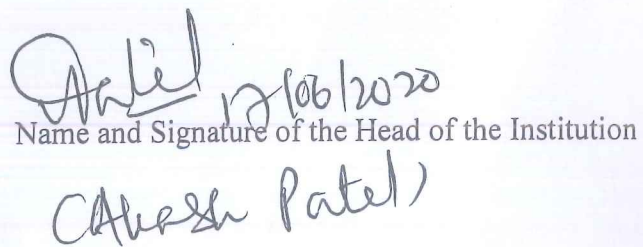 Patel 17/06/2020
Name and Signature of the Head of the Institution
(Akash Patel)